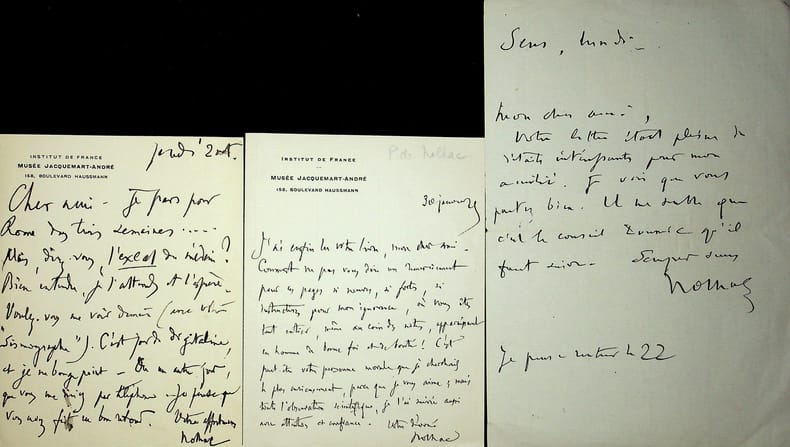 INSTITUT DE FRANCE
MUSÉE JACQUEMART-ANDRÉ
158, BOULEVARD HAUSSMANN
jeudi 2 oct.
Cher ami - Je pars pour
Rome dans trois semaines .....
Mais, dites-vous, l'exeat du médecin ?
Bien entendu, je l'attends et l'espère.
Voulez-vous me voir demain (avec votre
"Sismographe"). C'est jour de digitaline,
et je ne bouge point - Ou un autre jour,
que vous me direz par téléphone - Je pense que
vous avez fait un bon retour. Votre affectueux
Nolhac
INSTITUT DE FRANCE
P. de Nolhac
MUSÉE JACQUEMART-ANDRÉ
158, BOULEVARD HAUSSMANN
30 janvier
J'ai enfin lu votre livre, mon cher ami -
Comment ne pas vous dire un remerciement
pour ces pages si neuves, si fortes, si
instructives pour mon ignorance, où vous êtes
tout entier, même au coin des notes, apparaissant
en homme de bonne foi et de bonté ! C'est
part de votre personne morale que je cherchais
le plus curieusement, parce que je vous aime ; mais
toute l'observation scientifique, je l'ai suivie aussi
avec attention et confiance. Votre dévoué
Nolhac
Sens, lundi -
Mon cher ami,
Votre lettre était pleine de
détails intéressants pour mon
amitié. Je vois que vous
partez bien. Il me semble que
c'est le conseil qu'il
faut suivre - Semper tuus
Nolhac
Je pense rentrer le 22